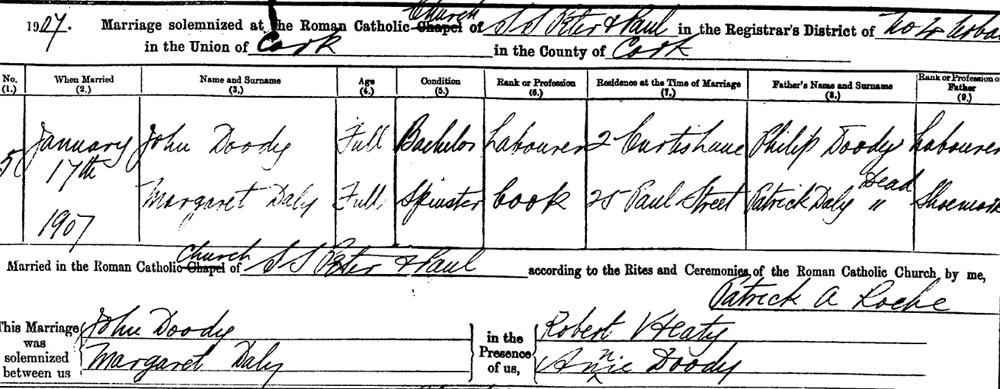 1907. Marriage solemnized at the Roman Catholic Chapel Church of SS Peter & Paul in the Registrar's District of No 4 Urban
in the Union of Cork in the County of Cork
No. When Married Name and Surname Age Condition Rank or Profession Residence at the Time of Marriage Father's Name and Surname Rank or Profession of Father
(1.) (2.) (3.) (4.) (5.) (6.) (7.) (8.) (9.)
5 January 17th 1907 John Doody Full Bachelor Labourer 2 Curtis Lane Philip Doody Labourer
Margaret Daly Full Spinster Cook 25 Paul Street Patrick Daly Dead " Shoemaker
Married in the Roman Catholic Chapel Church of SS Peter & Paul according to the Rites and Ceremonies of the Roman Catholic Church by me,
Patrick A Roche
This Marriage was solemnized between us John Doody
Margaret Daly
in the Presence of us, Robert Heaty
Annie Doody